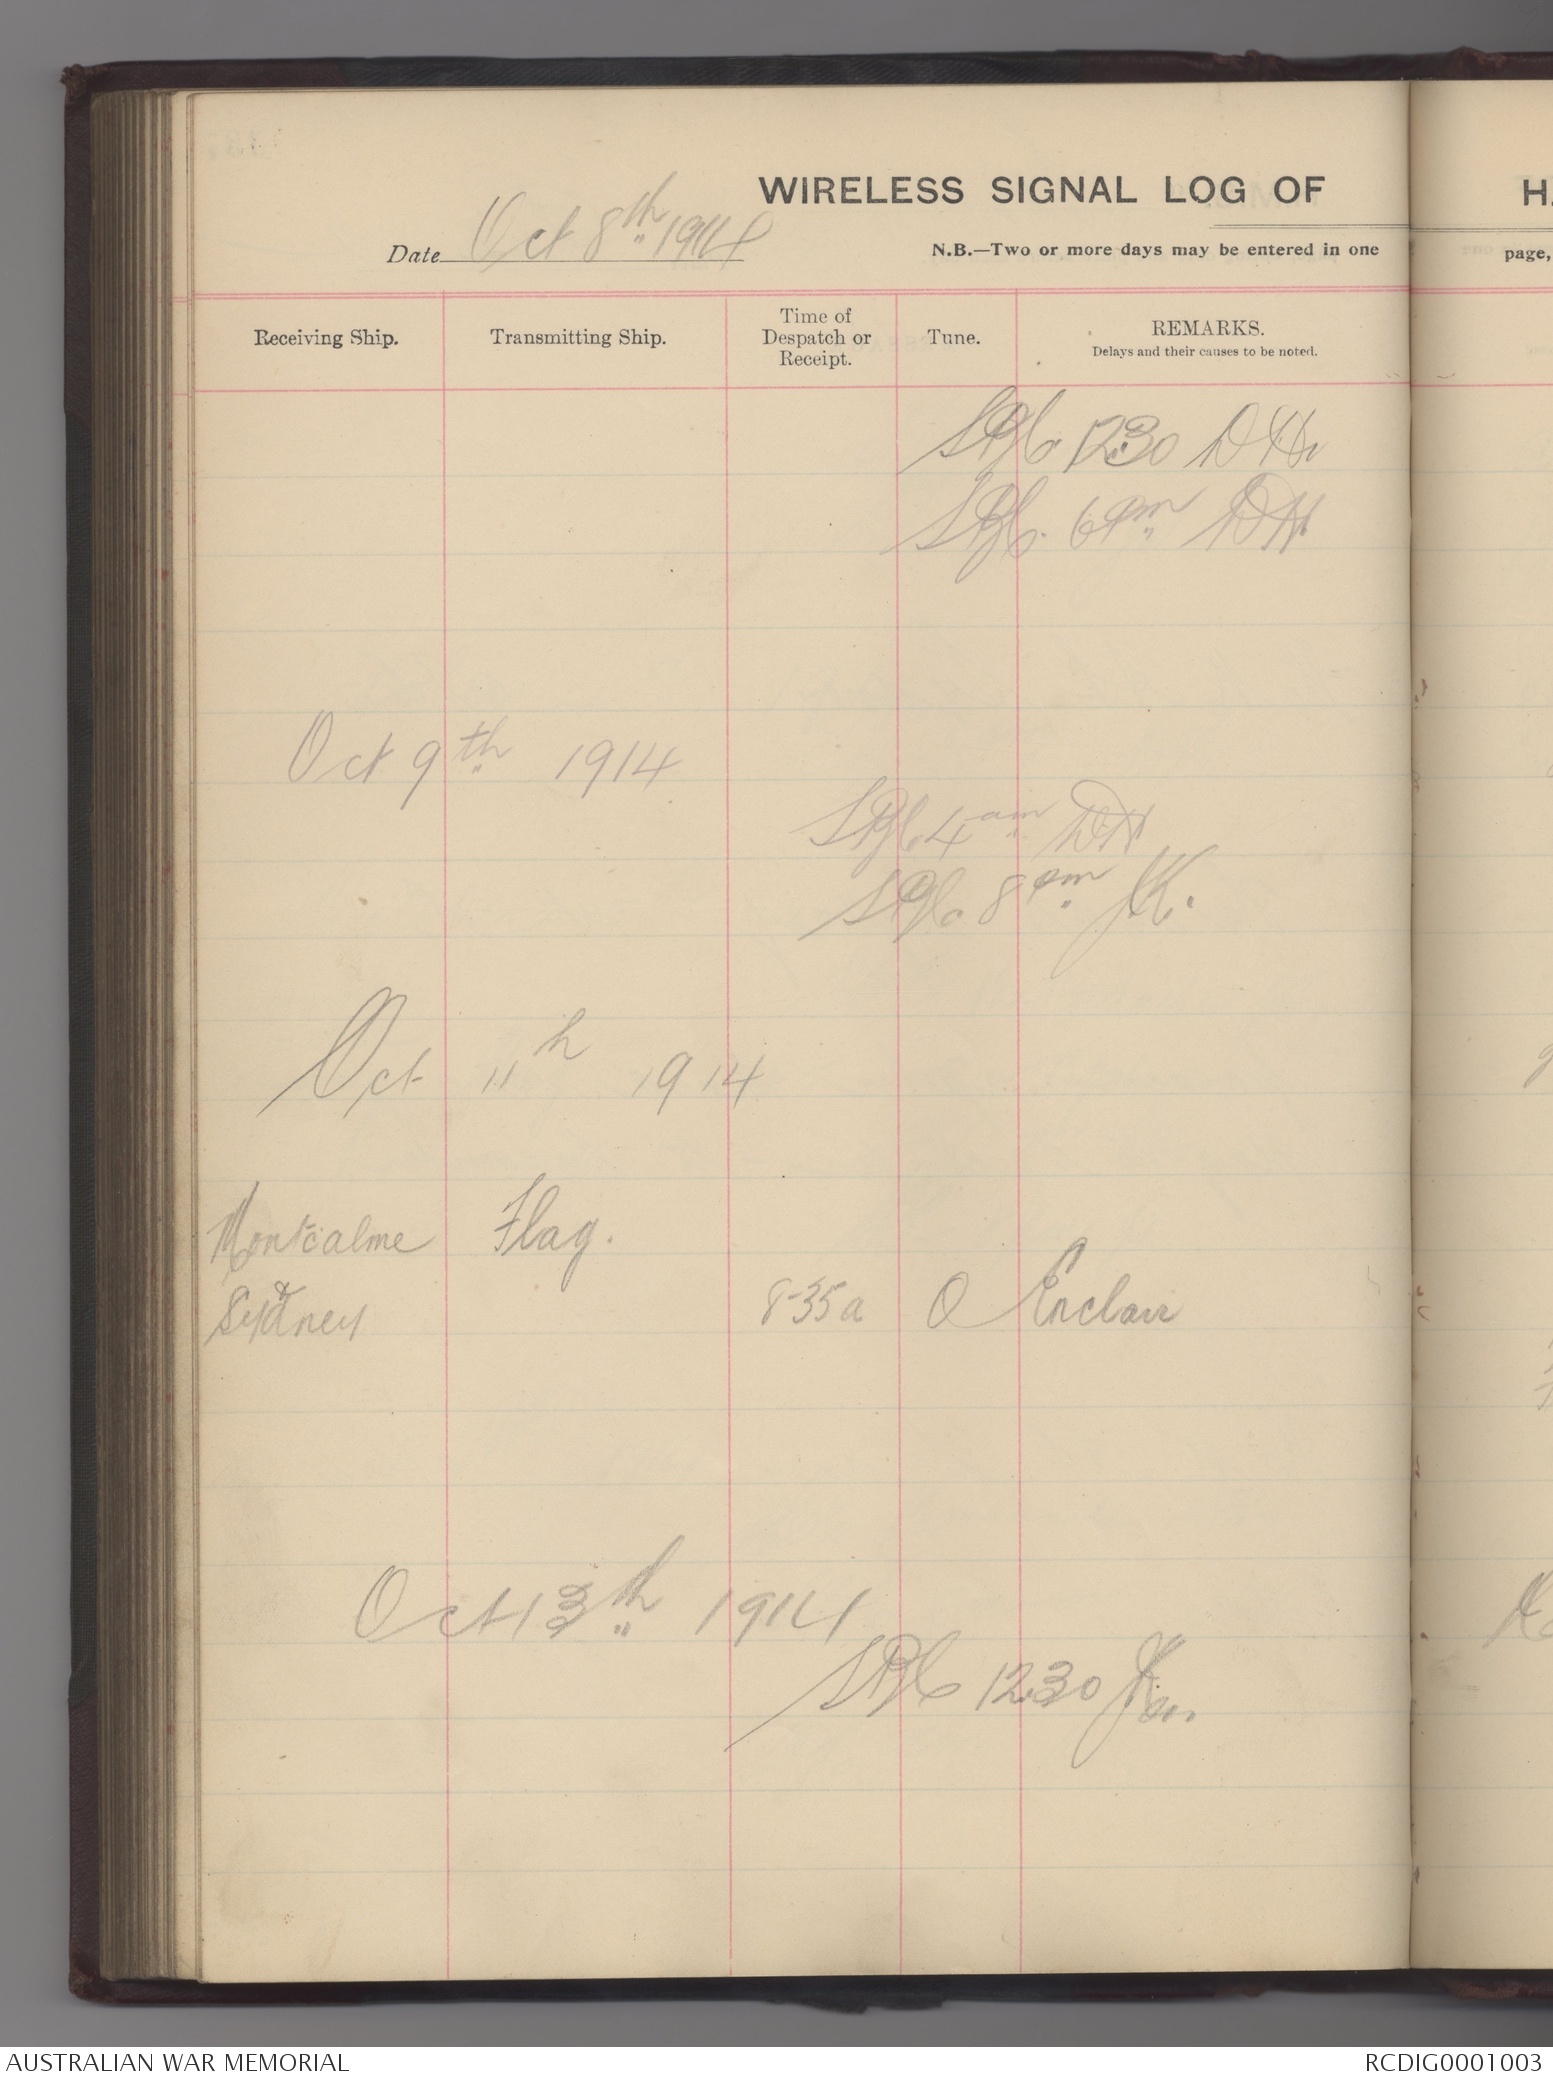 WIRELESS SIGNAL LOG OF
H.
Date Oct 8th 1914
N.B.—Two or more days may be entered in one
page,
Receiving Ship.
Transmitting Ship.
Time of
Despatch or
Receipt.
Tune.
REMARKS.
Delays and their causes to be noted.
1230 DH
6pm DH
Oct 9th 1914
4am DH
8pm JK.
Oct 11th 1914
Montcalme Flag.
&
Sydney 8-35a O Enclair
Oct 13th 1914
1230
AUSTRALIAN WAR MEMORIAL
RCDIG0001003